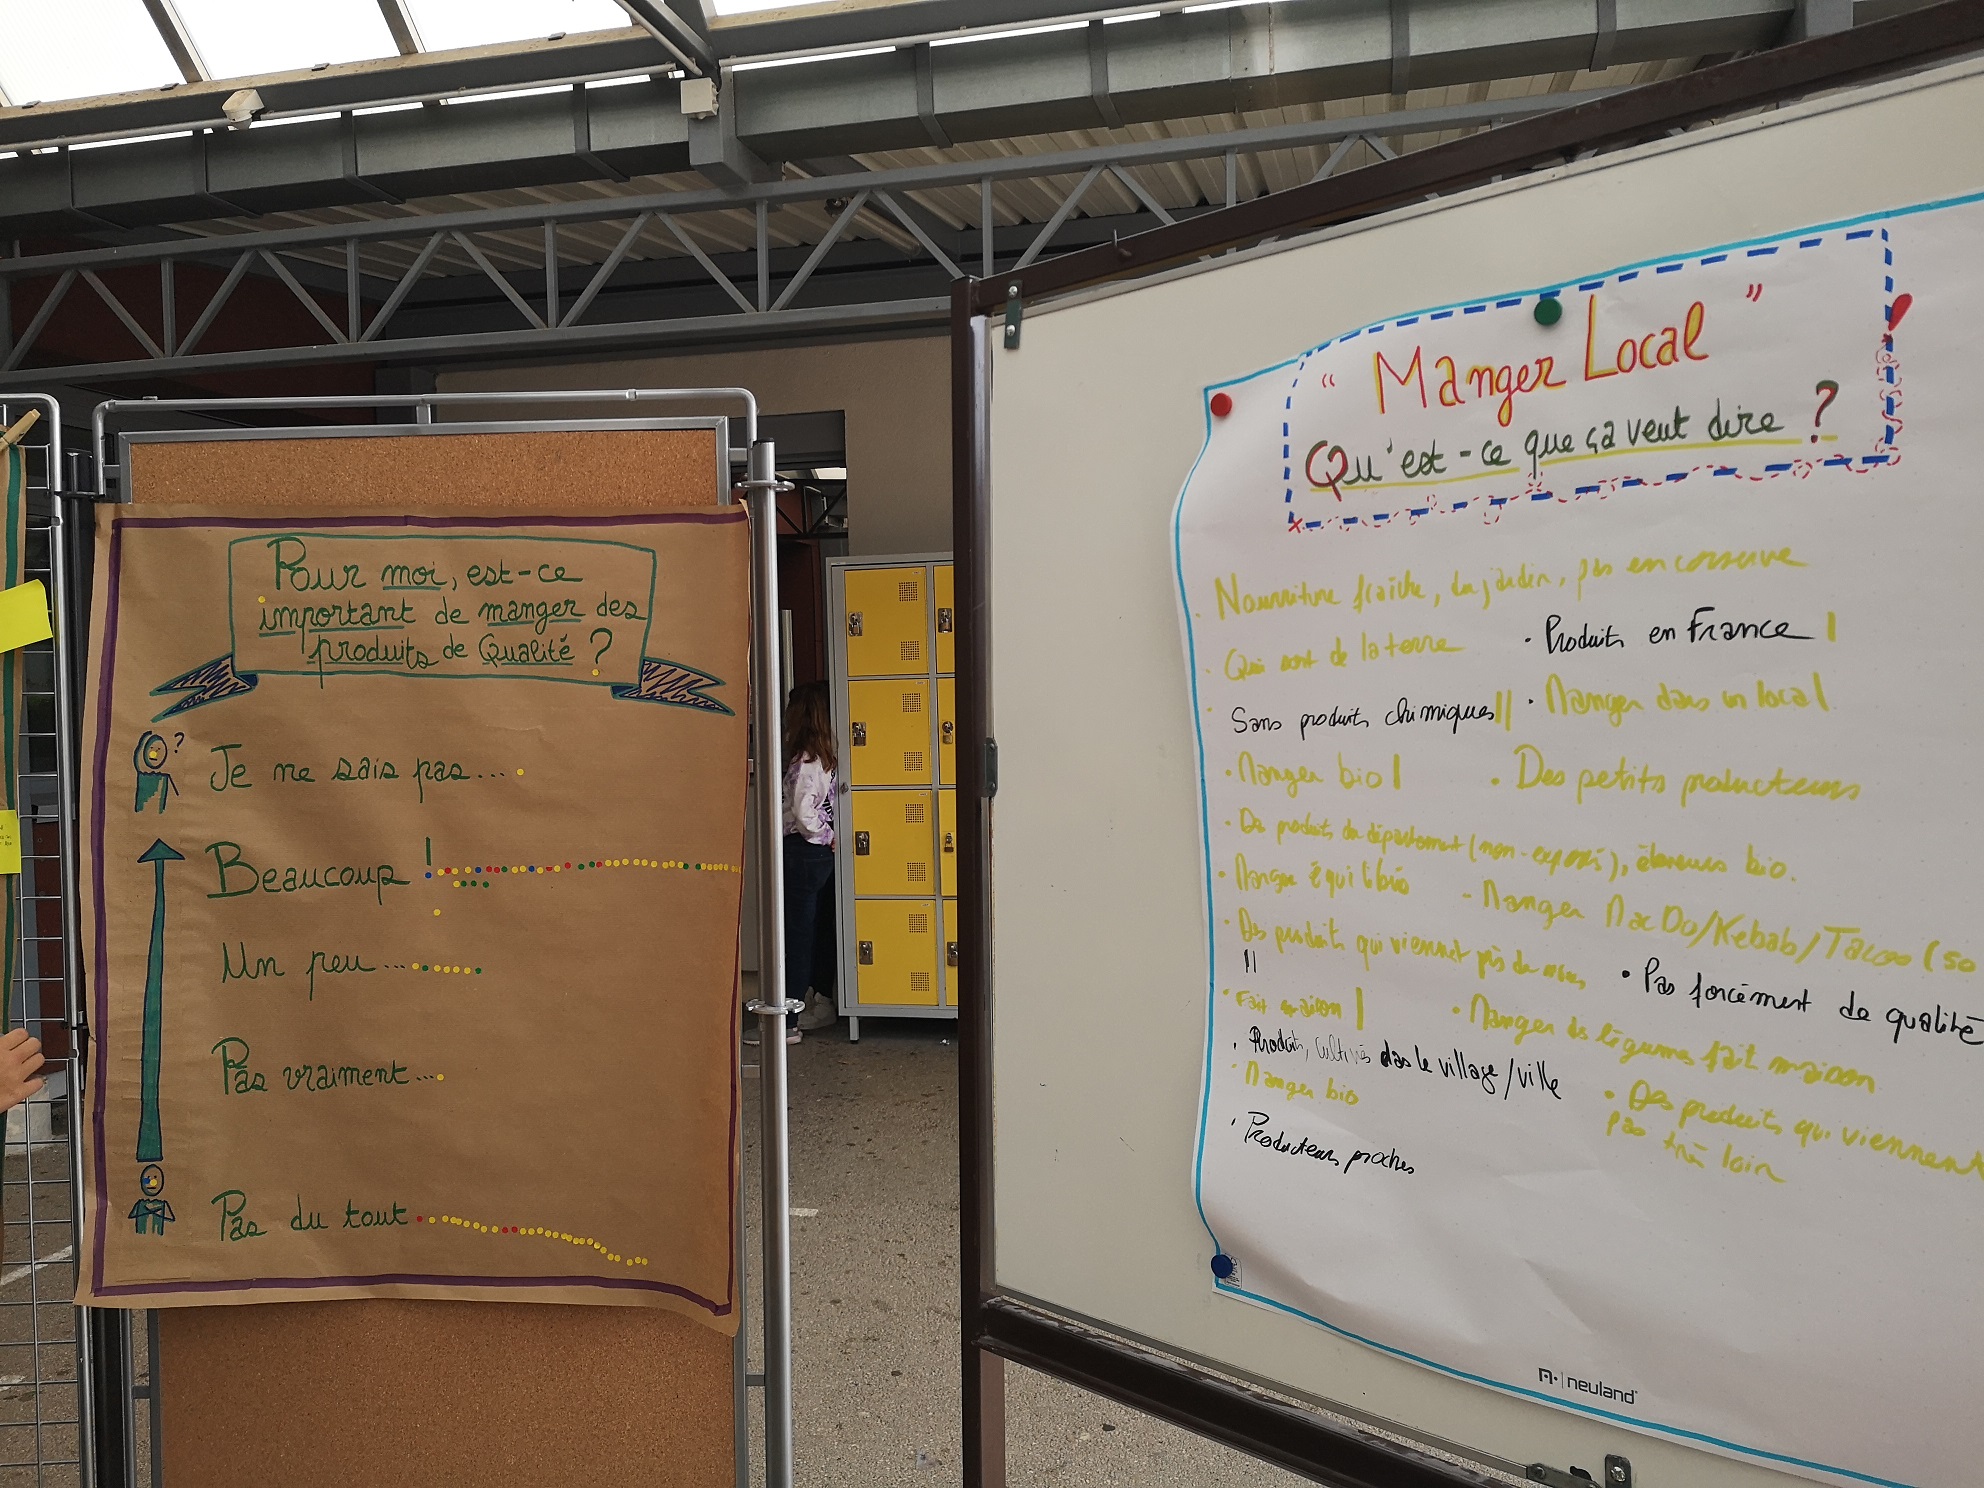 Pour moi, est-ce
important de manger des
produits de Qualité ?
?
Je ne sais pas...
Beaucoup !
Un peu...
Pas vraiment...
Pas du tout
" Manger Local "
Qu'est-ce que ça veut dire ?
. Nourriture fraîche, du jardin, pas en conserve
. Qui sont de la terre
. Produits en France |
Sans produits chimiques ||
. Manger dans un local
. Manger bio |
. Des petits producteurs
. Des produits du département (non-exporté), éleveurs bio.
. Manger équilibré
- Manger MacDo/Kebab/Tacos (so
. Des produits qui viennent près de
||
. Pas forcément de qualité
. Fait maison |
. Manger des légumes fait maison
. Produits, cultivés dans le village/ville
. Manger bio
. Des produits qui viennent
pas très loin
. Producteurs proches
neuland